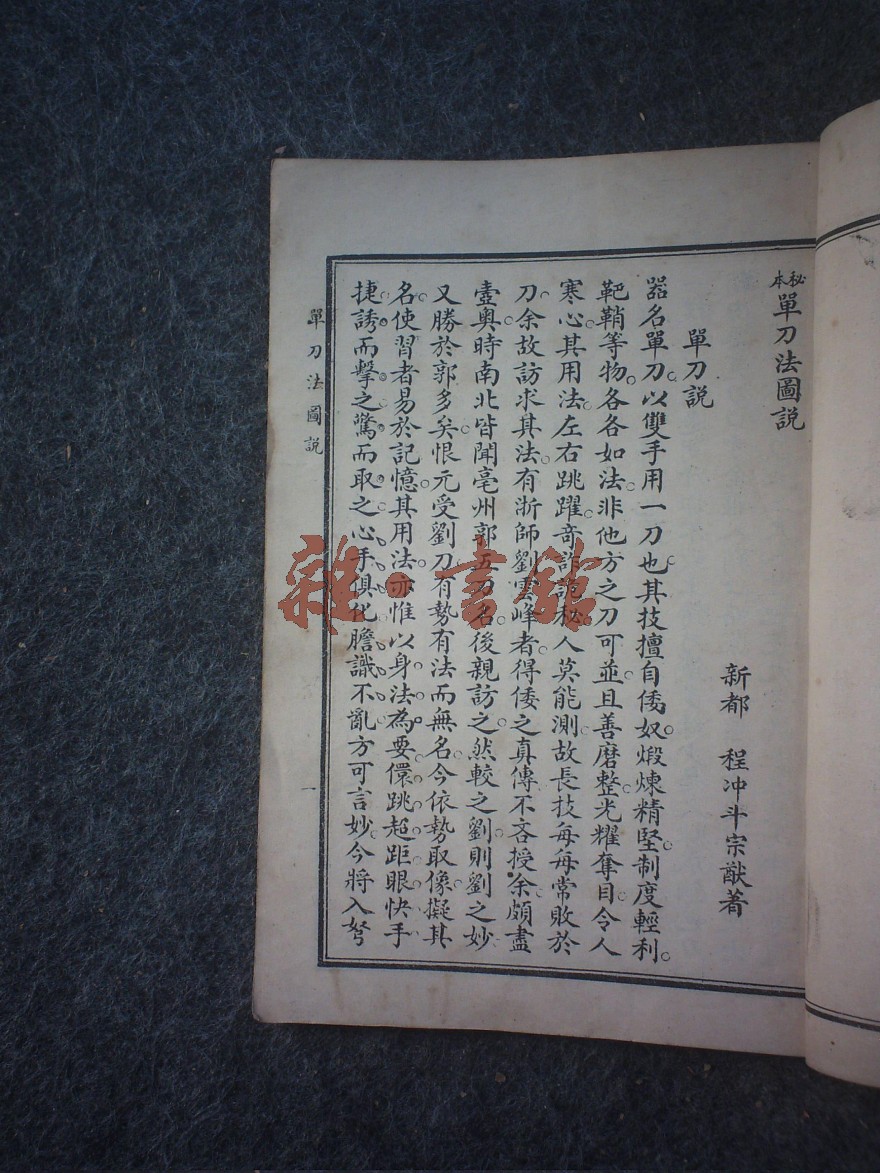 秘本單刀法圖説
新都 程冲斗宗猷著
單刀説
器名單刀。以雙手用一刀也。其技擅自倭奴。煅煉精堅。制度輕利。
靶鞘等物。各各如法。非他方之刀可並。且善磨整。光耀奪目。令人
寒心。其用法。左右跳躍。奇詐詭秘。人莫能測。故長技每每常敗於
刀。余故訪求其法。有浙師劉雲峰者。得倭之真傳。不吝授。余頗盡
壼奥。時南北皆聞亳州郭五刀名。後親訪之。然較之劉。則劉之妙
又勝於郭多矣。恨元受劉刀有勢有法而無名。今依勢取像。擬其
名。使習者易於記憶。其用法。亦惟以身法為要。儇跳超距。眼快手
捷。誘而擊之。驚而取之。心手俱化。膽識不亂。方可言妙。今將入弩
單刀法圖説
一
雜·書館